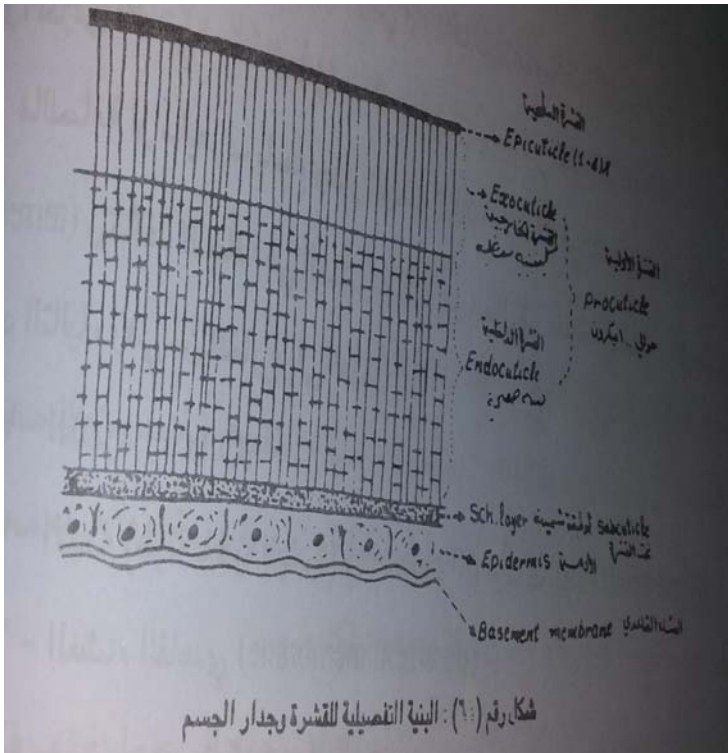 القشرة السطحية
Epicuticle (1-4)µ
Exocuticle
القشرة الخارجية
القشرة الأولية
Procuticle
القشرة الداخلية
Endocuticle
Sch. layer subcuticle
تحت القشرة
Epidermis الأدمة
Basement membrane الغشاء القاعدي
شكل رقم (٦): البنية التفصيلية للقشرة وجدار الجسم